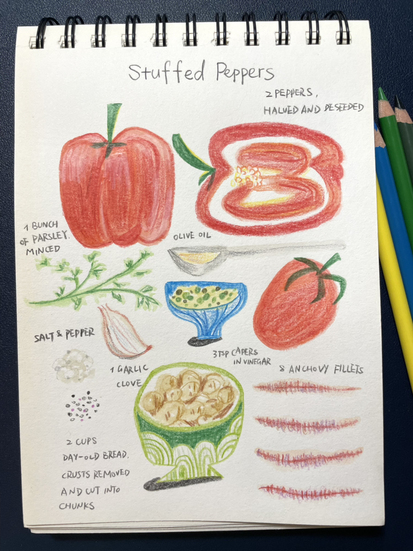 Stuffed Peppers
2 PEPPERS,
HALVED AND DESEEDED
1 BUNCH
OF PARSLEY.
MINCED
OLIVE OIL
SALT & PEPPER
1 GARLIC
CLOVE
3 TSP CAPERS
IN VINEGAR
8 ANCHOVY FILLETS
2 CUPS
DAY-OLD BREAD.
CRUSTS REMOVED
AND CUT INTO
CHUNKS